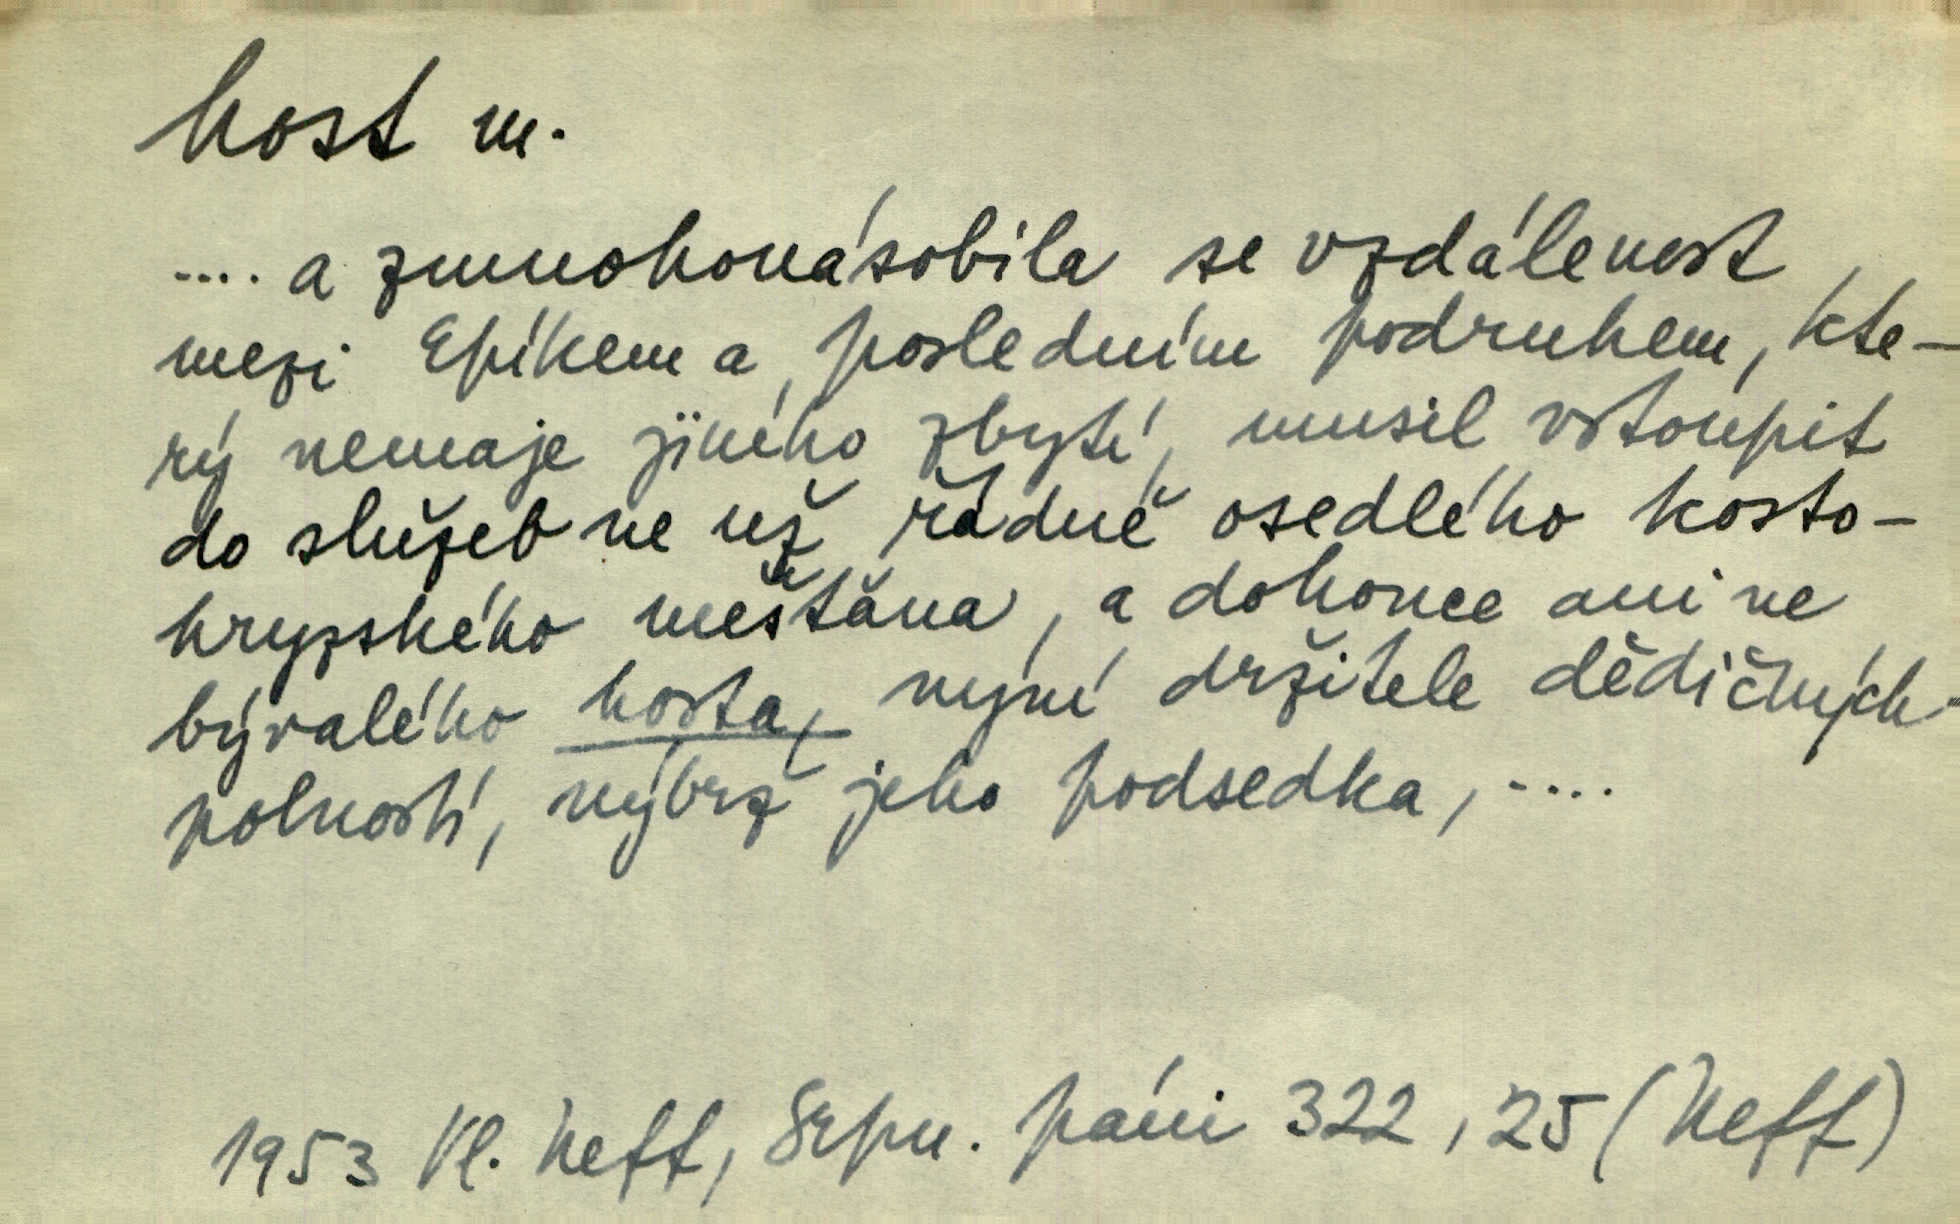 host m.
.... a zmnohonásobila se vzdálenost
mezi Epíkem a posledním podruhem, kte-
rý nemaje jiného zbytí, musil vstoupit
do služeb ne už řádně osedlého kosto-
hryzského měšťana, a dokonce ani ne
bývalého hosta, nyní držitele dědičných
polností, nýbrž jeho podsedka, ....
1953 Vl. Neff, Srpn. páni 322, 25 (Neff)